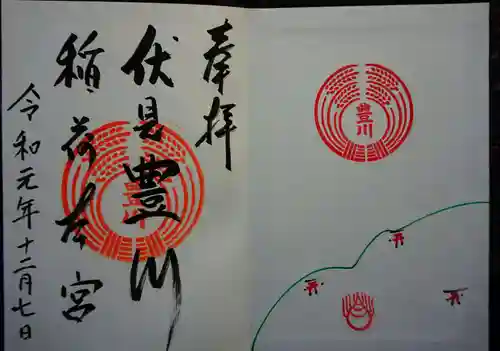 奉拝
伏見豊川
稲荷本宮
令和元年十二月七日
豊川
豊川